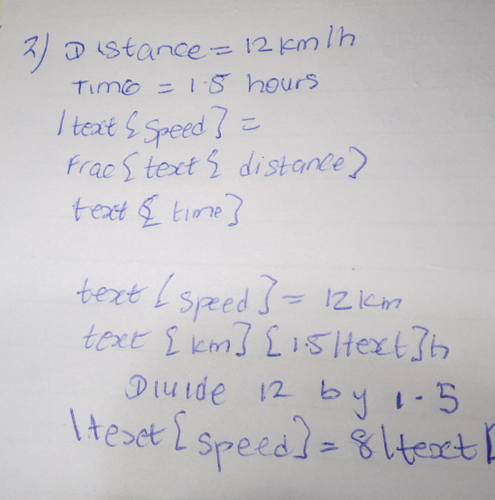 2) Distance = 12 km/h
Time = 1.5 hours
\text{speed} =
Frac{text{ distance}
text{ time}
text{speed} = 12 km
text {km} {1.5\text}h
Divide 12 by 1.5
\text{speed} = 8\text{